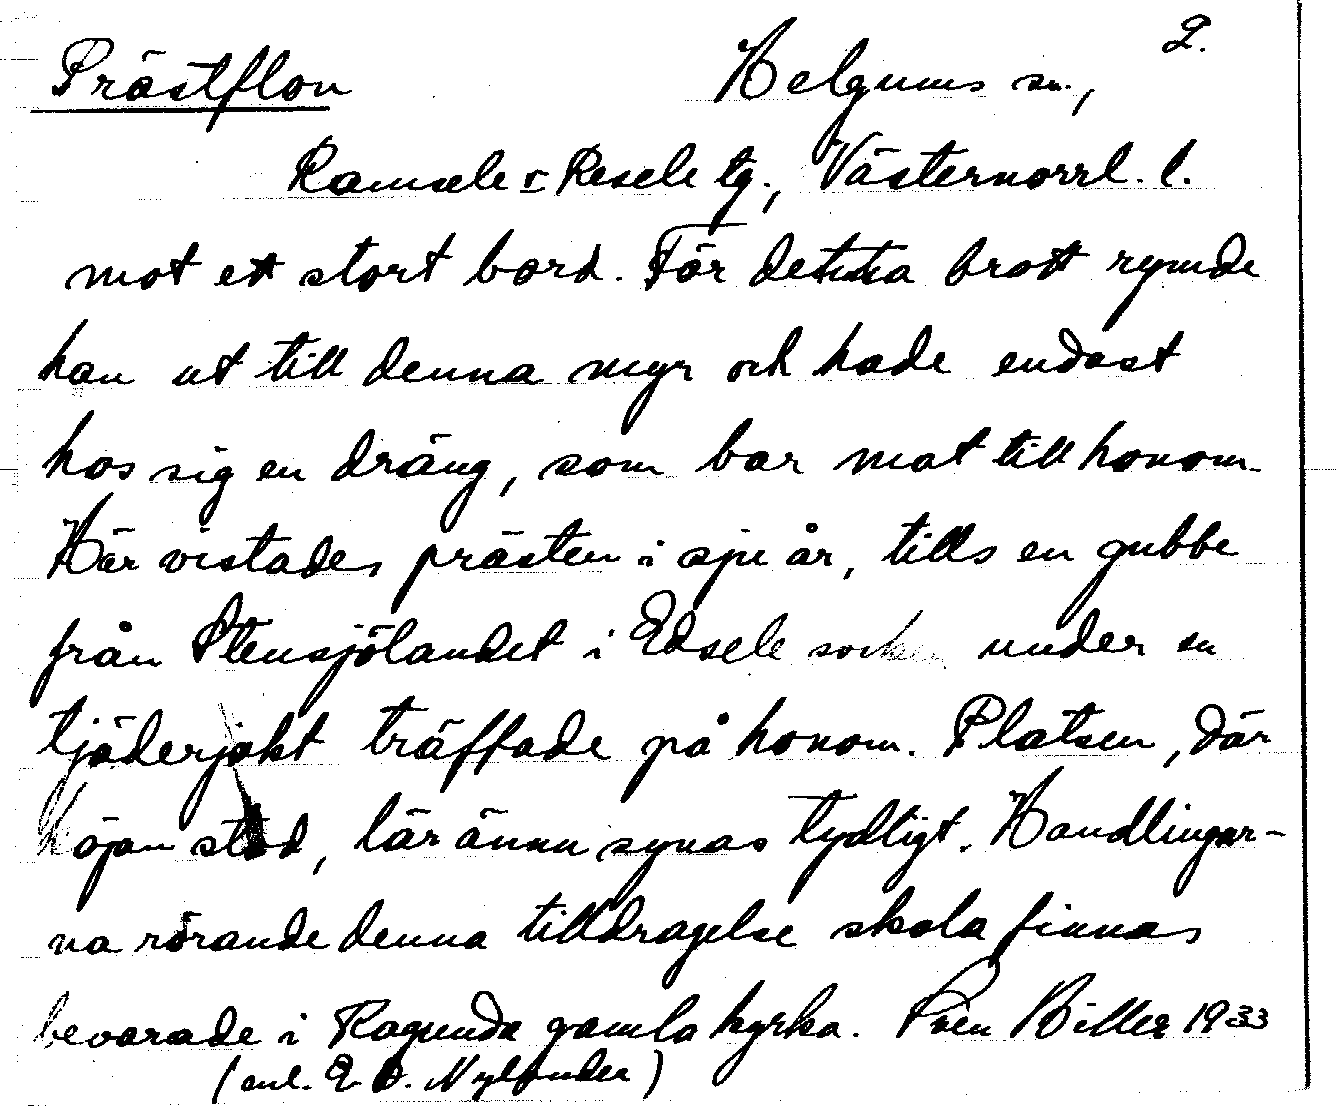 2.
Prästflon Helgums sn.,
Ramsele o Resele tg., Västernorrl. l.
mot ett stort bord. För detta brott rymde
han ut till denna myr och hade endast
hos sig en dräng, som bar mat till honom.
Här vistades prästen i sju år, tills en gubbe
från Stensjölandet i Edsele socken under en
tjäderjakt träffade på honom. Platsen, där
kojan stod, lär ännu synas tydligt. Handlingar-
na rörande denna tilldragelse skola finnas
bevarade i Ragunda gamla kyrka. Sven 1933
(enl. E. O. Nylander)